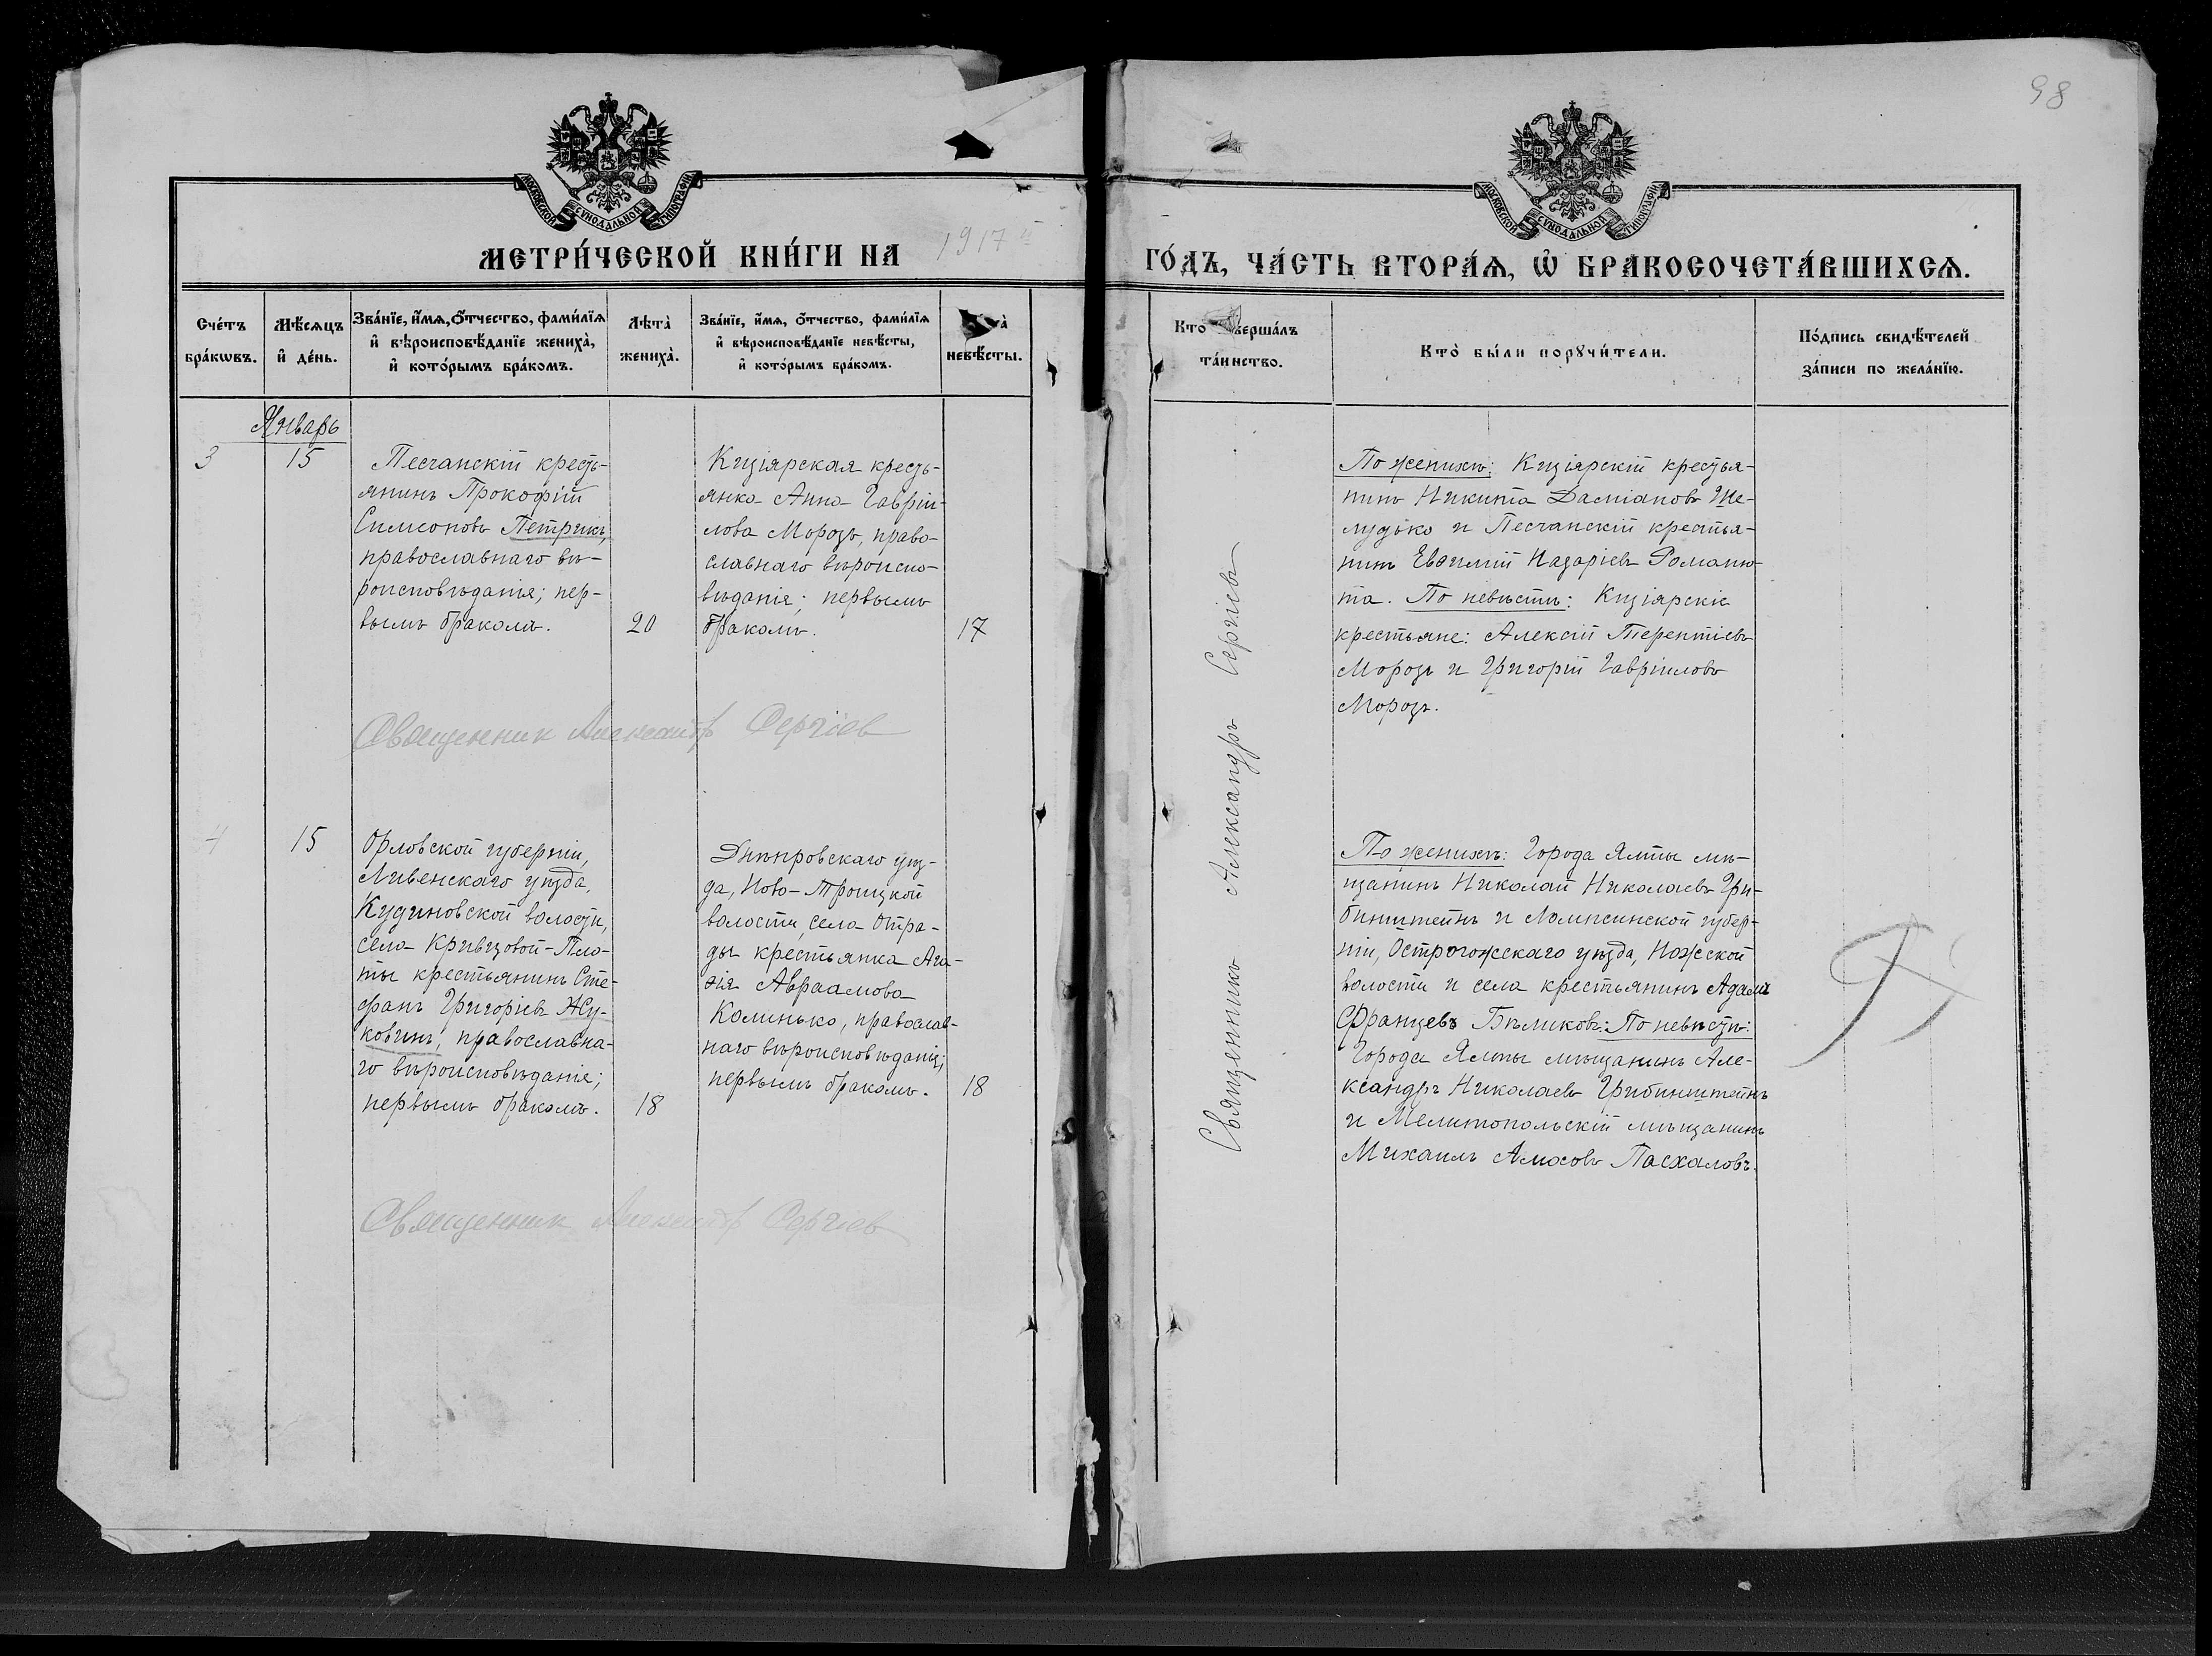 98
МОСКОВСКОЙ СУНОДАЛЬНОЙ ТИПОГРАФІИ
МОСКОВСКОЙ СУНОДАЛЬНОЙ ТИПОГРАФІИ
МЕТРИ́ЧЕСКОЙ КНИ́ГИ НА 1917
ГО́ДЪ, ЧА́СТЬ ВТОРА́Ѧ, Ѽ БРАКОСОЧЕТА́ВШИХСѦ.
Сче́тъ
бра́кѡвъ.
Мѣ́сѧцъ
и҆ де́нь.
Зва́нїе, и҆́мѧ, ѻ҆́тчество, фами́лїѧ
и҆ вѣроисповѣ́данїе жениха̀,
и҆ кото́рымъ бра́комъ.
Лѣта̀
жениха̀.
Зва́нїе, и҆́мѧ, ѻ҆́тчество, фами́лїѧ
и҆ вѣроисповѣ́данїе невѣ́сты,
и҆ кото́рымъ бра́комъ.
невѣ́сты.
Кто
верша́лъ
та́инство.
Кто̀ бы́ли порꙋчи́тели.
По́дпись свидѣ́телей
за́писи по жела́нїю.
Январь
3
15
Песчанскій кресть-
янинъ Прокофій
Симеоновъ Петрикъ,
православнаго вѣ-
роисповѣданія; пер-
вымъ бракомъ.
20
Кизіярская кресть-
янка Анна Гавріи-
лова Морозъ, право-
славнаго вѣроиспо-
вѣданія; первымъ
бракомъ.
17
По женихѣ: Кизіярскій крестья-
нинъ Никита Даміановъ Ше-
лудько и Песчанскій крестья-
нинъ Евѳимій Назаріевъ Романю-
та. По невѣстѣ: Кизіярскіе
крестьяне: Алексій Терентіевъ
Морозъ и Григорій Гавріиловъ
Морозъ.
Священник Александр Сергіев
4
15
Орловской губерніи,
Ливенскаго уѣзда,
Кудиновской волости,
села Кривцовой-Пло-
ты крестьянинъ Сте-
фанъ Григоріевъ Жу-
ковинъ, православна-
го вѣроисповѣданія;
первымъ бракомъ.
18
Днѣпровскаго уѣз-
да, Ново-Троицкой
волости, села Отра-
ды крестьянка Ага-
ѳія Авраамова
Калинько, православ-
наго вѣроисповѣданія;
первымъ бракомъ.
18
По женихѣ: Города Ялты мѣ-
щанинъ Николай Николаевъ Гри-
бинштейнъ и губер-
ніи, Острогожскаго уѣзда,
волости и села крестьянинъ Адамъ
Францевъ Бѣликовъ: По невѣстѣ:
Города Ялты мѣщанинъ Але-
ксандръ Николаевъ Грибинштейнъ
и Мелитопольскій мѣщанинъ
Михаилъ Амосовъ Пасхаловъ.
Священник Александр Сергіев
Священникъ Александръ Сергіевъ